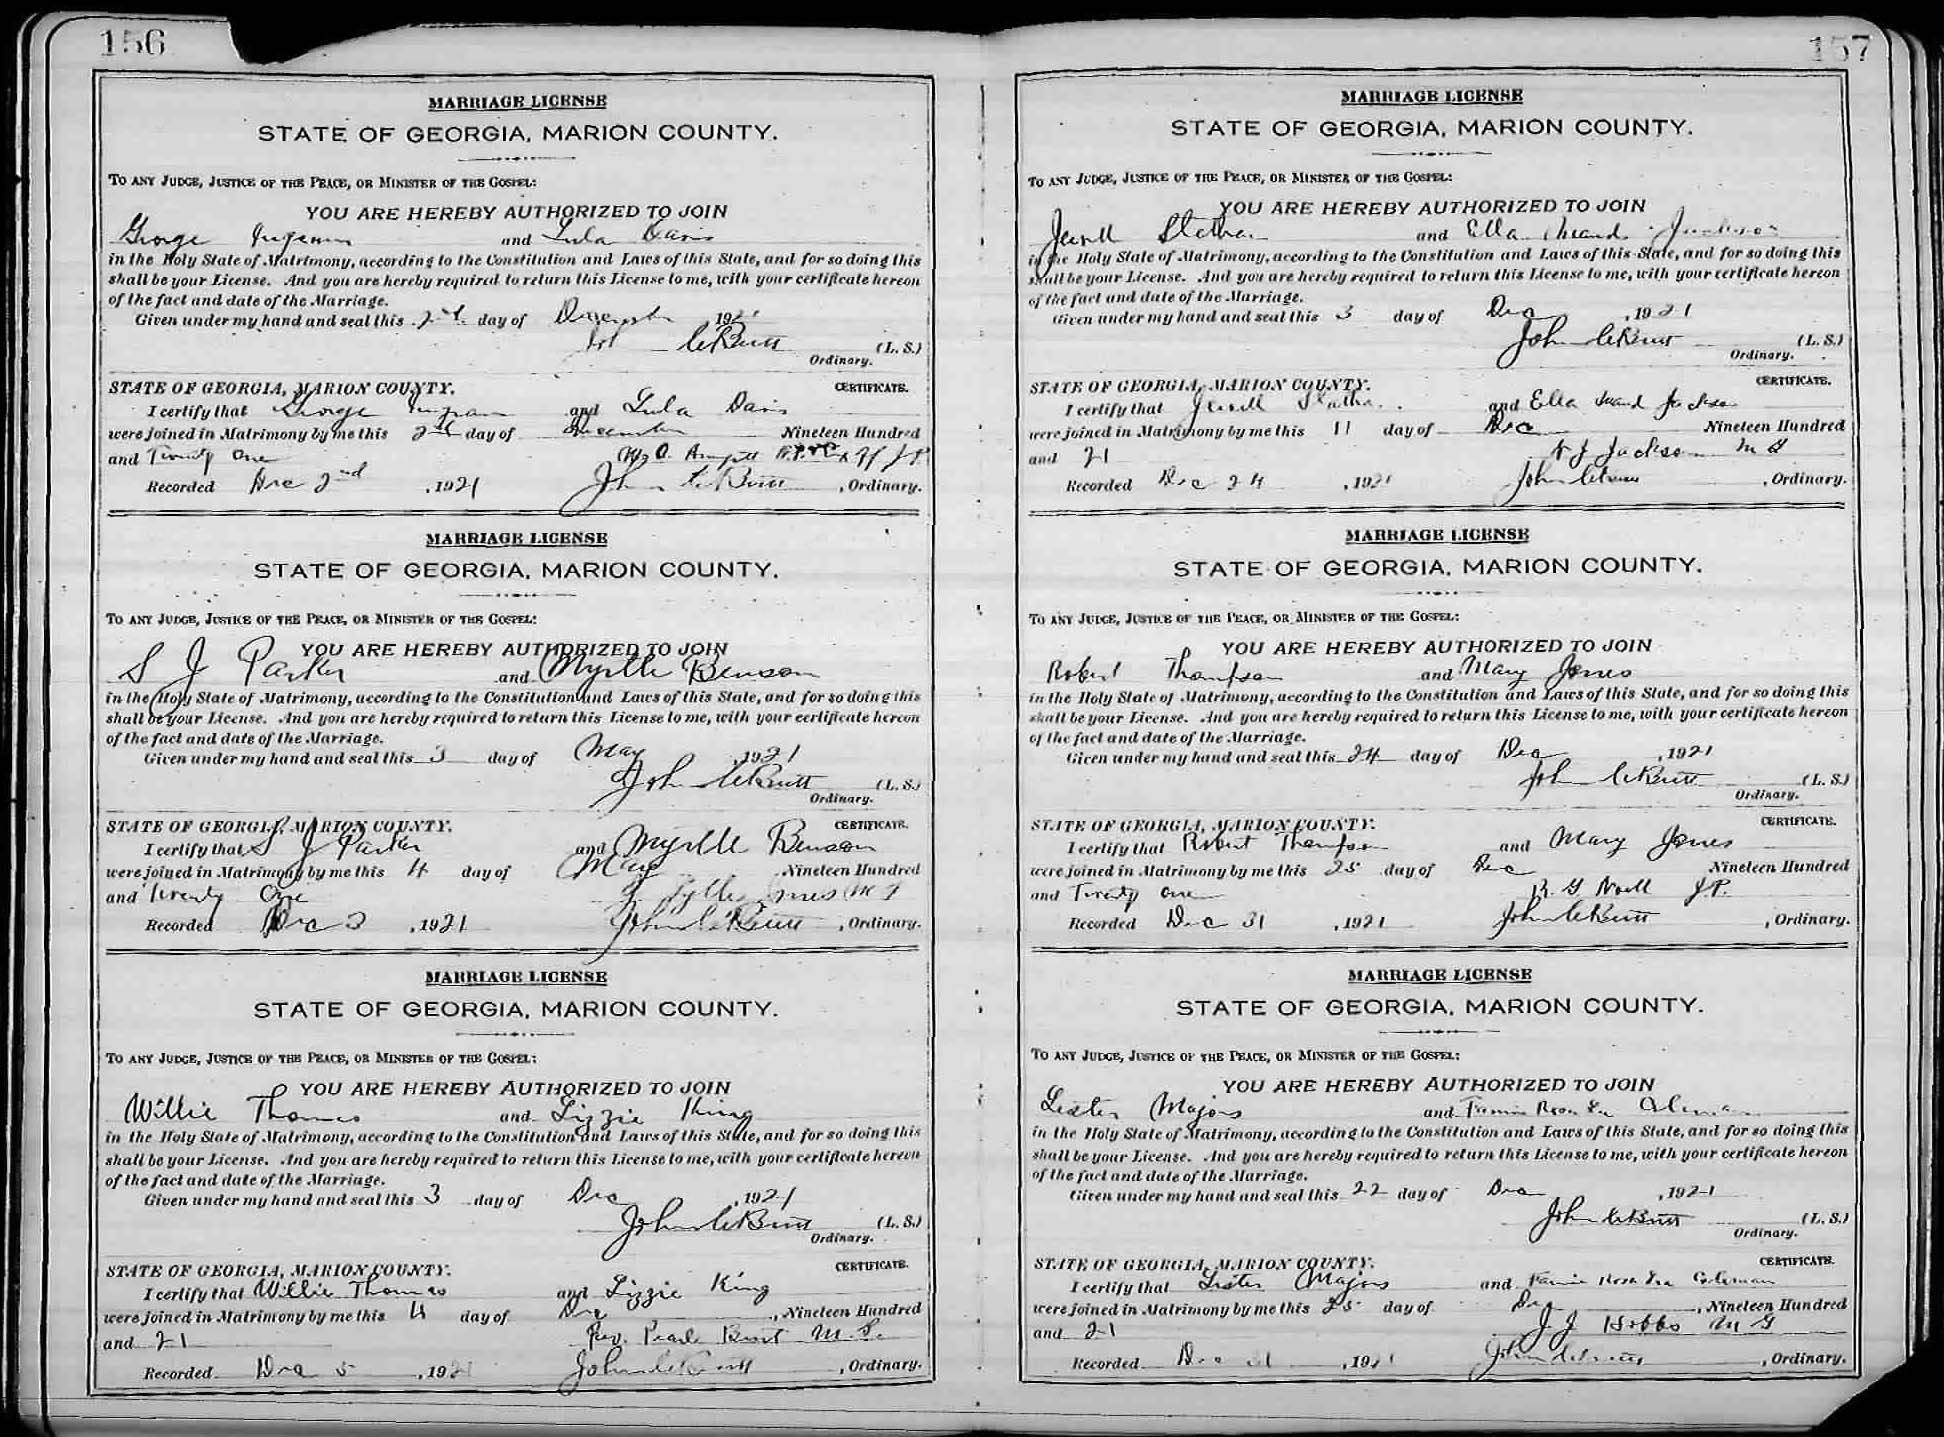 156
MARRIAGE LICENSE
STATE OF GEORGIA, MARION COUNTY.
TO ANY JUDGE, JUSTICE OF THE PEACE, OR MINISTER OF THE GOSPEL:
YOU ARE HEREBY AUTHORIZED TO JOIN
George Ingram and Lula Davis
in the Holy State of Matrimony, according to the Constitution and Laws of this State, and for so doing this
shall be your License. And you are hereby required to return this License to me, with your certificate hereon
of the fact and date of the Marriage.
Given under my hand and seal this 2nd day of December, 1921
(L. S.)
Ordinary.
STATE OF GEORGIA, MARION COUNTY. CERTIFICATE.
I certify that George Ingram and Lula Davis
were joined in Matrimony by me this 2nd day of December Nineteen Hundred
and Twenty One
Recorded Dec 2nd, 1921 John C Butt, Ordinary.
MARRIAGE LICENSE
STATE OF GEORGIA, MARION COUNTY.
TO ANY JUDGE, JUSTICE OF THE PEACE, OR MINISTER OF THE GOSPEL:
YOU ARE HEREBY AUTHORIZED TO JOIN
S J Parker and Myrtle Benson
in the Holy State of Matrimony, according to the Constitution and Laws of this State, and for so doing this
shall be your License. And you are hereby required to return this License to me, with your certificate hereon
of the fact and date of the Marriage.
Given under my hand and seal this 3 day of May, 1921
John C Butt (L. S.)
Ordinary.
STATE OF GEORGIA, MARION COUNTY. CERTIFICATE.
I certify that S J Parker and Myrtle Benson
were joined in Matrimony by me this 4 day of May, Nineteen Hundred
and Twenty One
Recorded Dec 3, 1921 John C Butt, Ordinary.
MARRIAGE LICENSE
STATE OF GEORGIA, MARION COUNTY.
TO ANY JUDGE, JUSTICE OF THE PEACE, OR MINISTER OF THE GOSPEL:
YOU ARE HEREBY AUTHORIZED TO JOIN
Willie Thomas and Lizzie King
in the Holy State of Matrimony, according to the Constitution and Laws of this State, and for so doing this
shall be your License. And you are hereby required to return this License to me, with your certificate hereon
of the fact and date of the Marriage.
Given under my hand and seal this 3 day of Dec, 1921
John C Butt (L. S.)
Ordinary.
STATE OF GEORGIA, MARION COUNTY. CERTIFICATE.
I certify that Willie Thomas and Lizzie King
were joined in Matrimony by me this 4 day of Dec, Nineteen Hundred
and 21 Rev.
Recorded Dec 5, 1921 John C Butt, Ordinary.
157
MARRIAGE LICENSE
STATE OF GEORGIA, MARION COUNTY.
TO ANY JUDGE, JUSTICE OF THE PEACE, OR MINISTER OF THE GOSPEL:
YOU ARE HEREBY AUTHORIZED TO JOIN
Jewell and Ella Jackson
in the Holy State of Matrimony, according to the Constitution and Laws of this State, and for so doing this
shall be your License. And you are hereby required to return this License to me, with your certificate hereon
of the fact and date of the Marriage.
Given under my hand and seal this 3 day of Dec, 1921
John C Butt (L. S.)
Ordinary.
STATE OF GEORGIA, MARION COUNTY. CERTIFICATE.
I certify that Jewell and Ella Jackson
were joined in Matrimony by me this 11 day of Dec Nineteen Hundred
and 21 Jackson M G
Recorded Dec 24, 1921 John C Butt, Ordinary.
MARRIAGE LICENSE
STATE OF GEORGIA, MARION COUNTY.
TO ANY JUDGE, JUSTICE OF THE PEACE, OR MINISTER OF THE GOSPEL:
YOU ARE HEREBY AUTHORIZED TO JOIN
Robert Thompson and Mary Jones
in the Holy State of Matrimony, according to the Constitution and Laws of this State, and for so doing this
shall be your License. And you are hereby required to return this License to me, with your certificate hereon
of the fact and date of the Marriage.
Given under my hand and seal this 24 day of Dec, 1921
John C Butt (L. S.)
Ordinary.
STATE OF GEORGIA, MARION COUNTY. CERTIFICATE.
I certify that Robert Thompson and Mary Jones
were joined in Matrimony by me this 25 day of Dec Nineteen Hundred
and Twenty one R G Noell J.P.
Recorded Dec 31, 1921 John C Butt, Ordinary.
MARRIAGE LICENSE
STATE OF GEORGIA, MARION COUNTY.
TO ANY JUDGE, JUSTICE OF THE PEACE, OR MINISTER OF THE GOSPEL:
YOU ARE HEREBY AUTHORIZED TO JOIN
Lester Majors and Rosa Coleman
in the Holy State of Matrimony, according to the Constitution and Laws of this State, and for so doing this
shall be your License. And you are hereby required to return this License to me, with your certificate hereon
of the fact and date of the Marriage.
Given under my hand and seal this 22 day of Dec, 1921
John C Butt (L. S.)
Ordinary.
STATE OF GEORGIA, MARION COUNTY. CERTIFICATE.
I certify that Lester Majors and Rosa Coleman
were joined in Matrimony by me this 25 day of Dec, Nineteen Hundred
and 21 J J Hobbs M G
Recorded Dec 31, 1921 John C Butt, Ordinary.